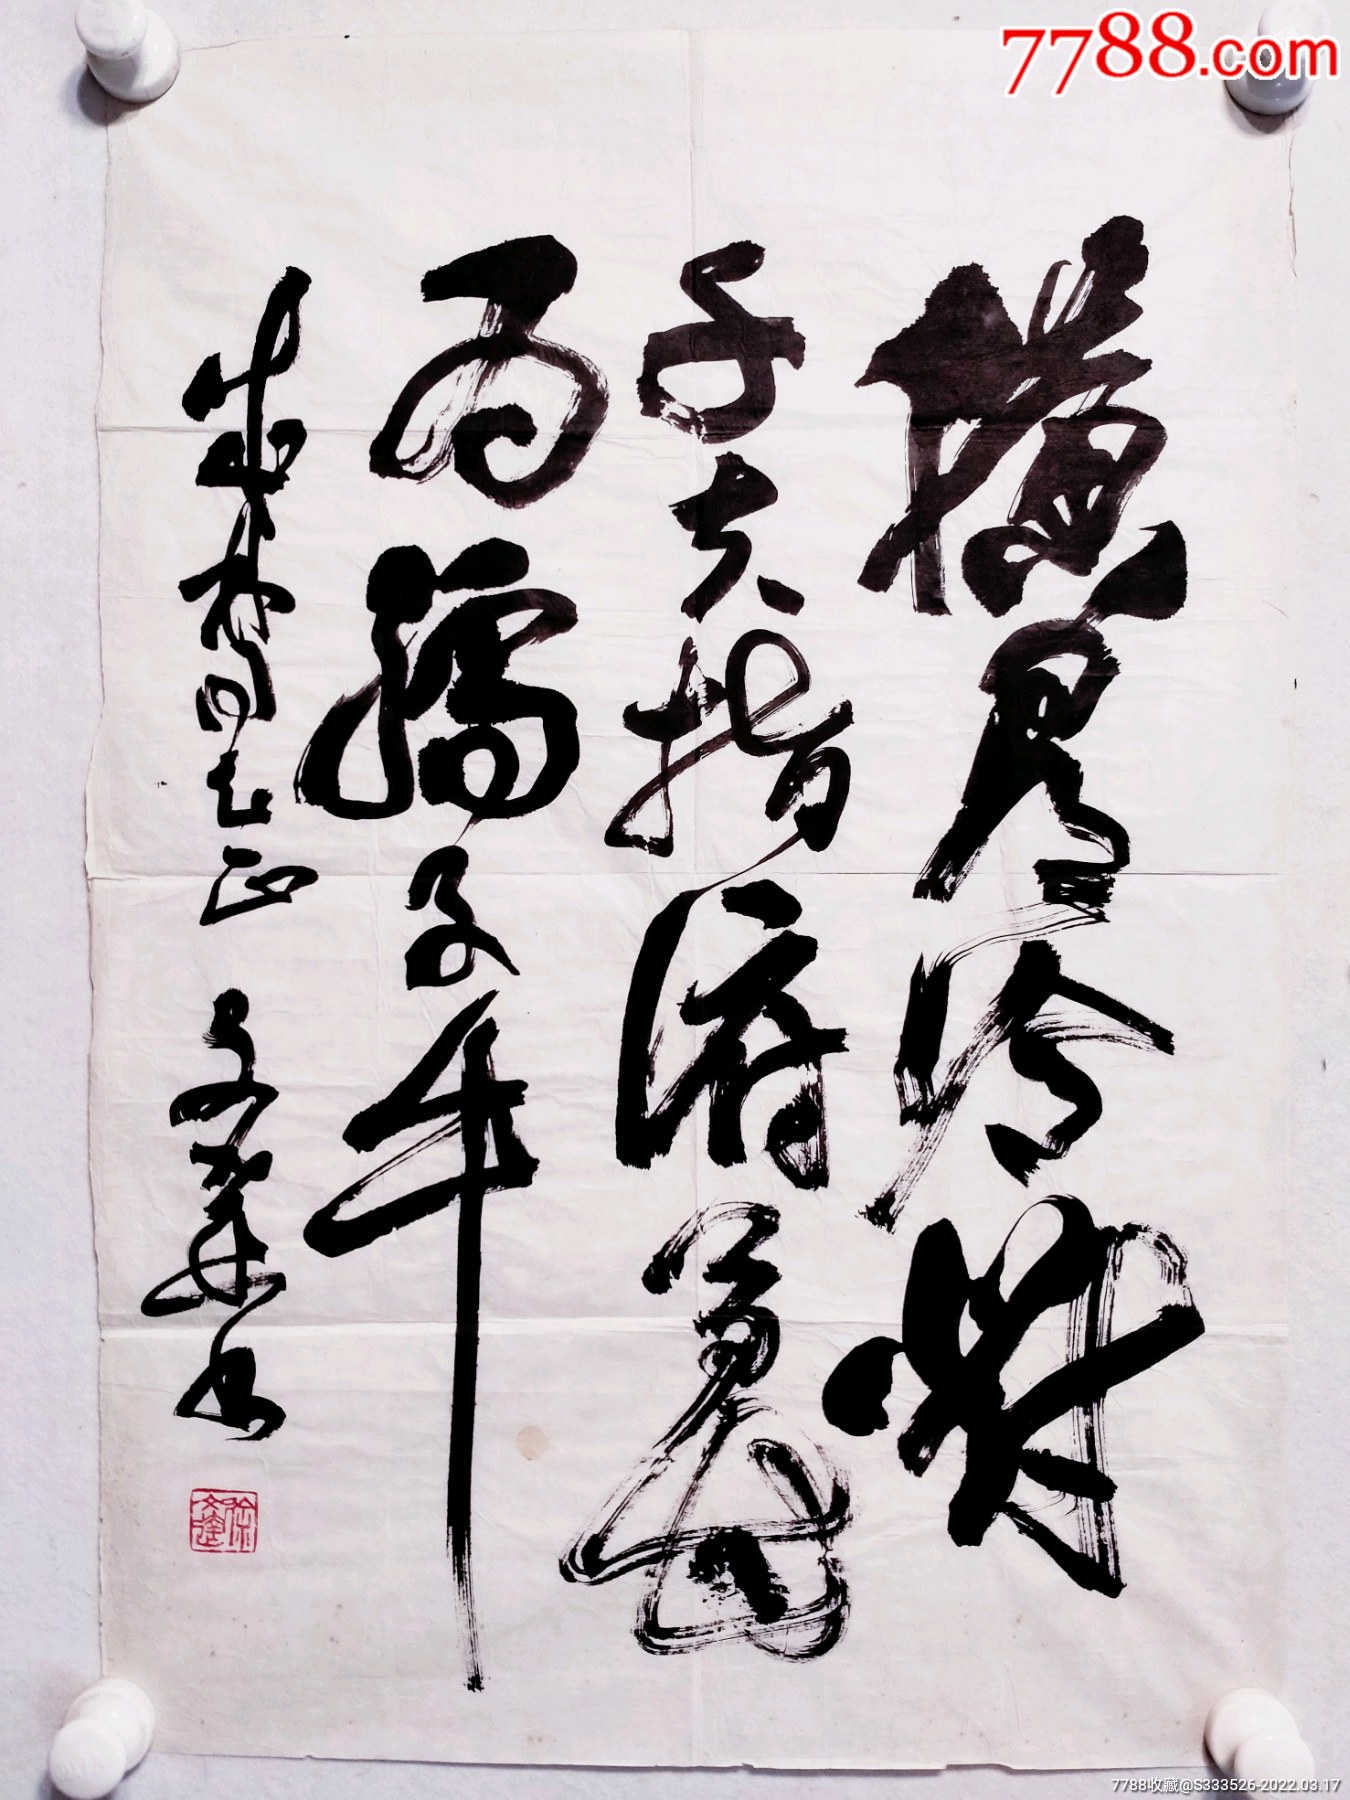 7788.com
横眉冷對
千夫指俯首甘
为孺子牛
同志正 书
7788收藏@S333526-2022.03.17